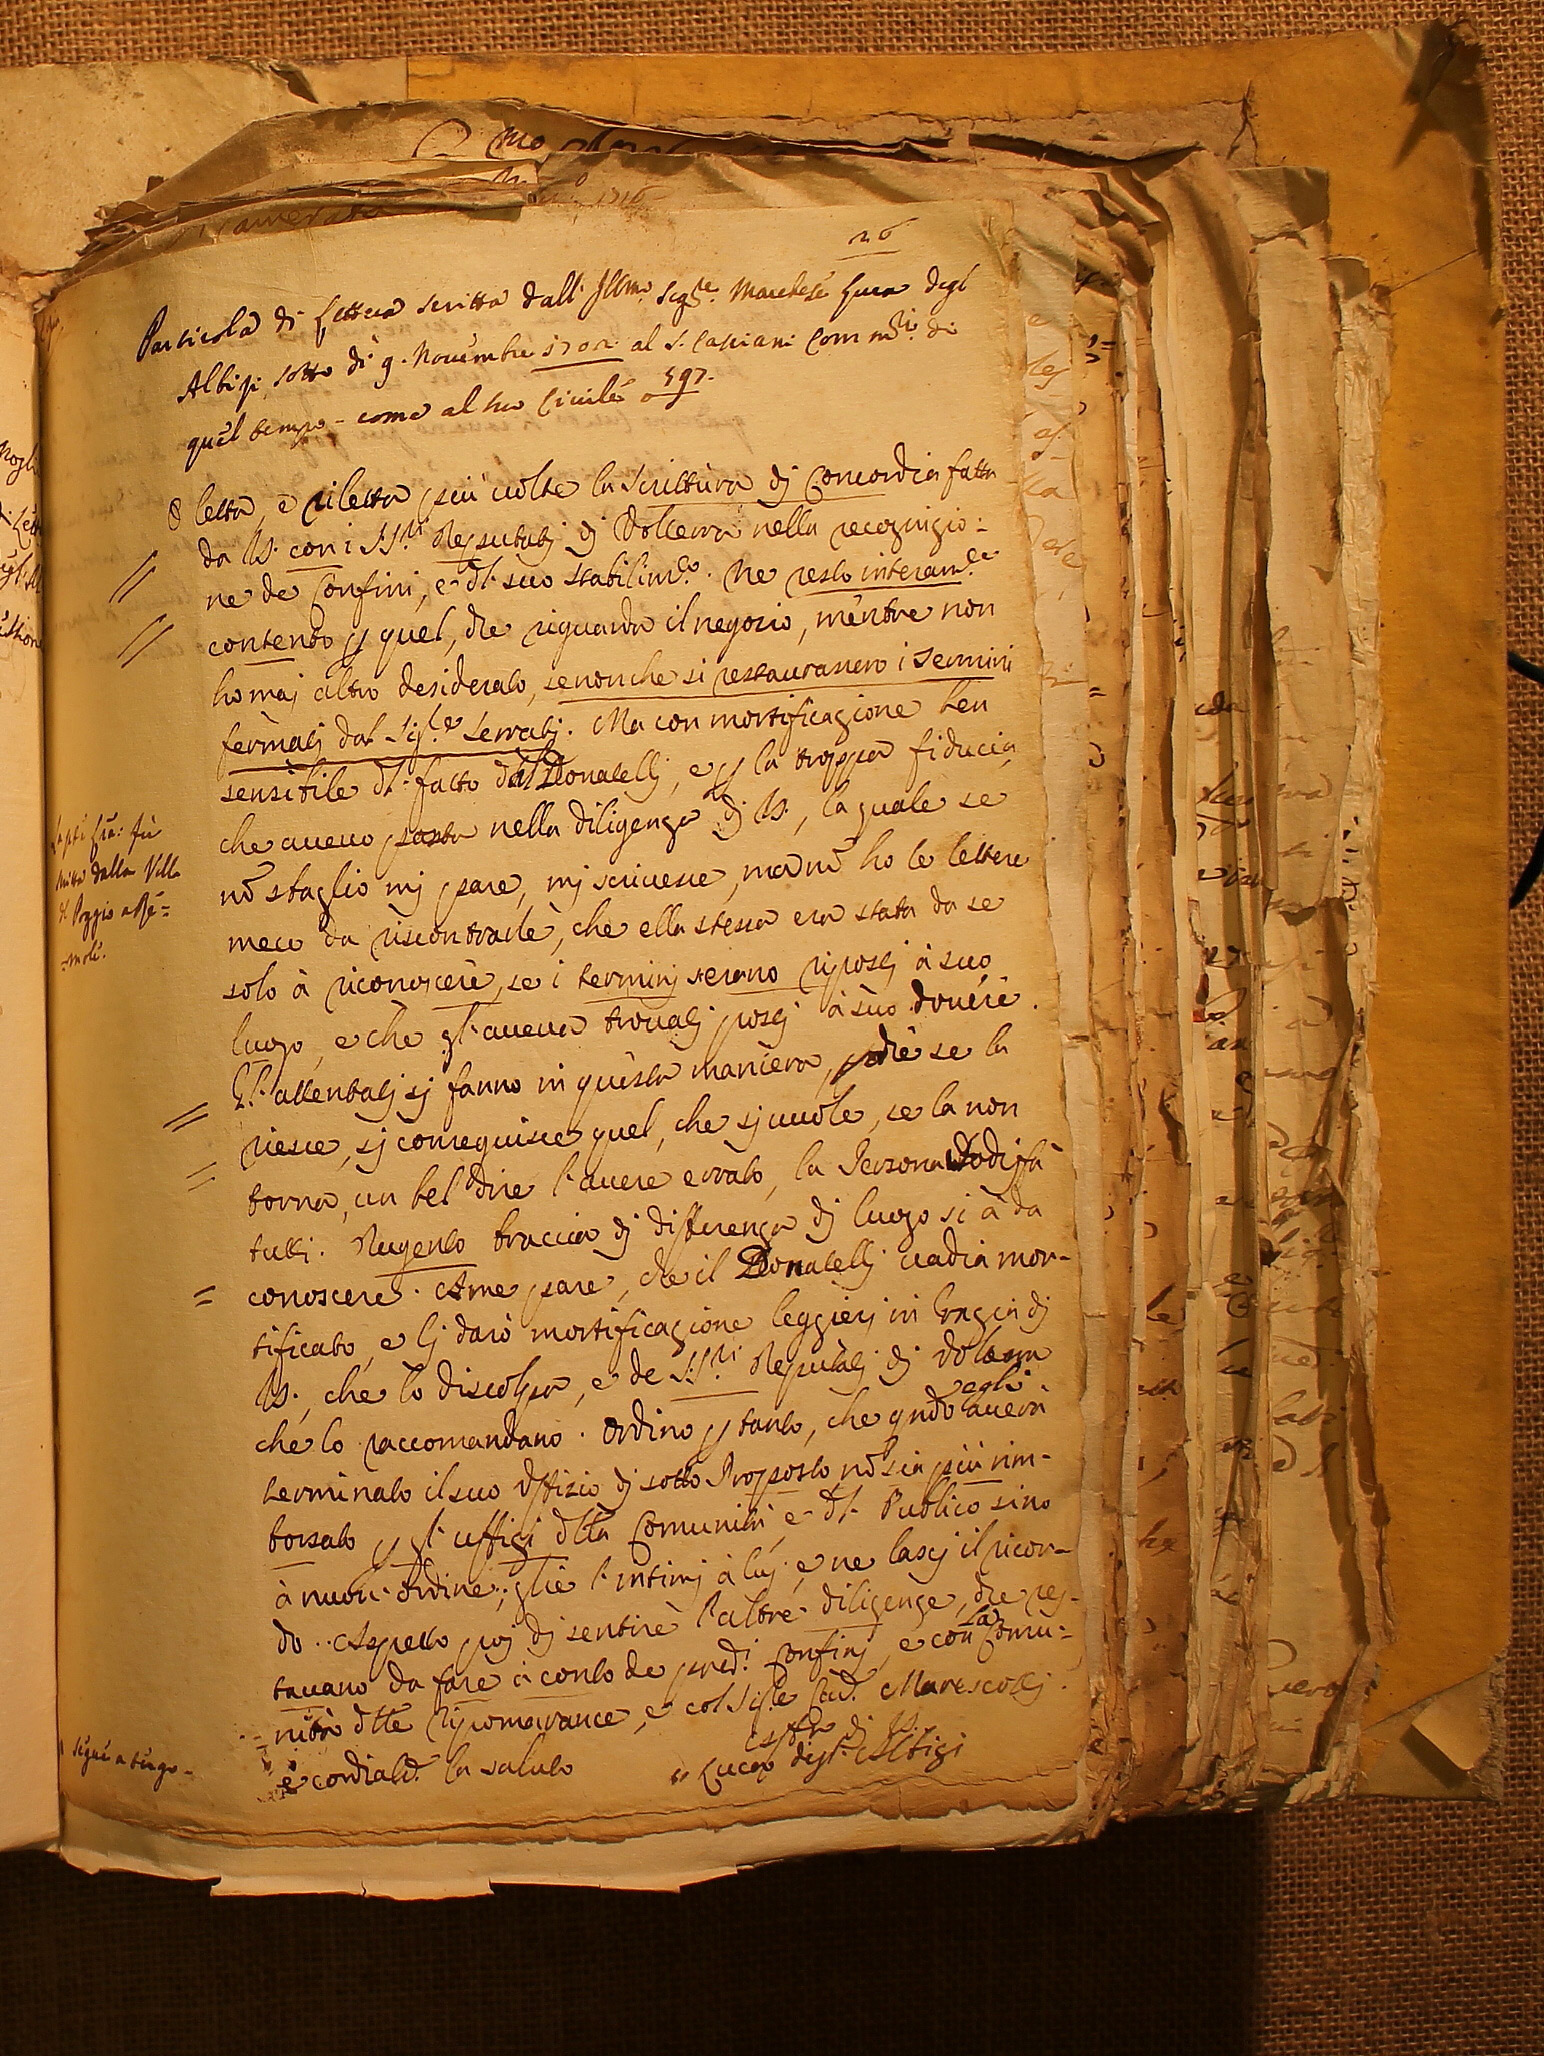 26
Particola di Lettera scritta dall' Illmo. Sigre. Marchese Luca degl
Albizi, sotto dì 9. Novembre 1702 al S. Cassiani Commrio. di
quel tempo - come al suo Civile a 597.
O letta, e riletta più volte la scrittura dj Concordia fatta
da VS. con i SSri. Deputatj dj Volterra nella recognizio=
ne de Confini, e dl suo stabilimto. Ne resto interamte
contento p quel, che riguarda il negozio, mentre non
ho maj altro desiderato, senonche si restaurassero i Termini
fermatj dal Sigre Serratj. Ma con mortificazione ben
sensibile dl fatto del Donatellj, e p la troppa fiducia,
che avevo posta nella diligenza dj VS., la quale se
nõ sbaglio mj pare, mj scrivesse, ma nõ ho le lettere
meco da riscontrarle, che ella stessa era stata da se
solo à riconoscere, se i terminj serano ripostj à suo
luogo, e che gl'aveva trovatj postj à suo dovere.
Gl'attentatj sj fanno in questa maniera, pche se la
riesce, sj conseguisce quel, che sj vuole, se la non
torna, un bel dire l'avere errato, la Persona sodisfà
tutti. Dugento braccia dj differenza dj luogo si à da
conoscere. Ame pare, che il Donatellj vadia mor-
tificato, e lj darò mortificazione leggierj in grazia dj
VS., che lo discolpa, e de SSri Deputatj dj Volterra
che lo raccomandano. Ordino p tanto, che qndo egli averà
terminato il suo Offizio dj sotto Proposto, nõ sia più rim-
borsato p gl'uffizi dlla Comunità e dl Publico sino
à nuovo ordine; glie l'intimj à luj, e ne lascj il ricor-
do.. Aspetto poj dj sentire l'altre diligenze, che res-
tavano da fare à conto de pred.i Confinj, e con la Comu=
nità dlle Ripomarance, e col Sigre Cav. Marescottj.
e cordialte. la saluto
Luca degl'Albizi
fù
dalla Villa
di Poggio a Re=
=mole.
Segue a tergo -